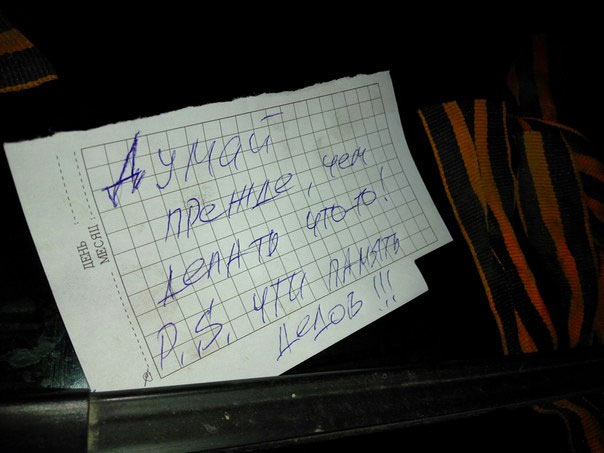 ДЕНЬ
МЕСЯЦ
Думай
прежде, чем
делать что-то!
P.S. чти память
дедов!!!